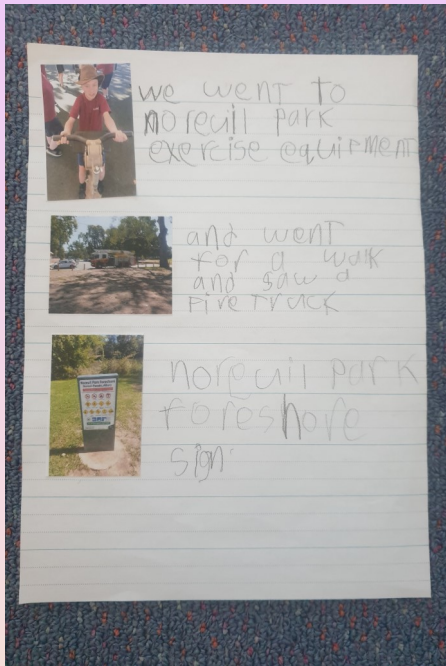 we went to
noreuil park
exercise equipment
and went
for a walk
and saw a
fire truck
noreuil park
foreshore
sign